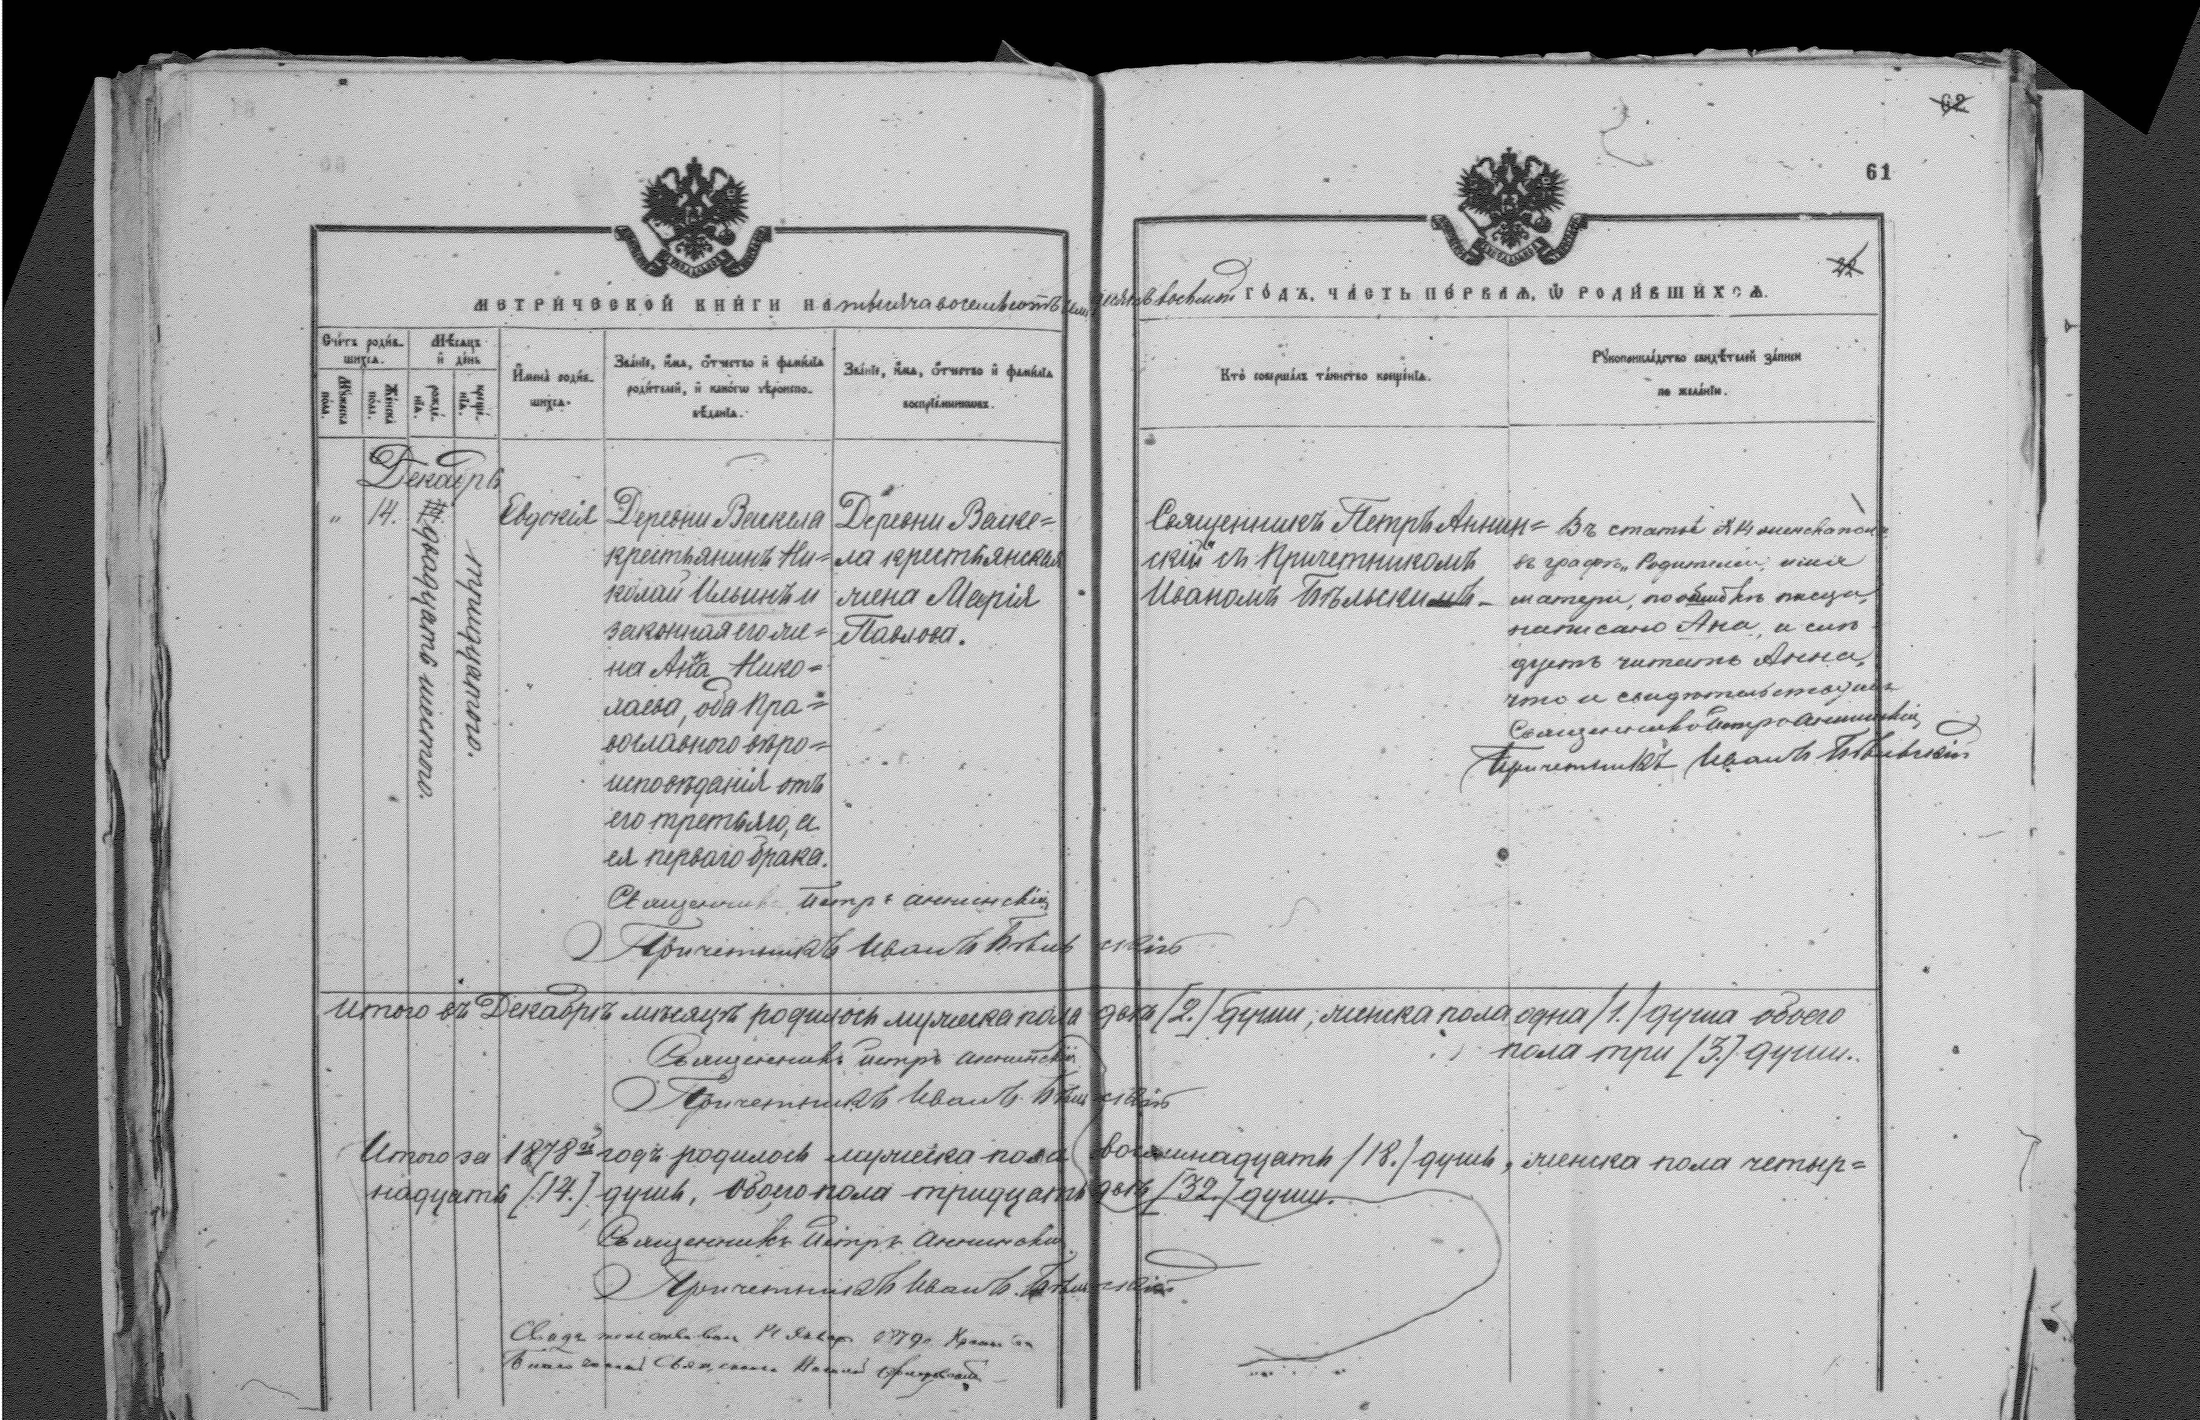 62
61
22
МЕТРИЧЕСКОЙ КНИГИ НА тысяча восемьсотъ семьдесятъ восьмой ГОДЪ, ЧАСТЬ ПЕРВАЯ, Ѿ РОДИВШИХСЯ.
Счетъ родившихся.
Мужеска пола.
Женска пола.
Мѣсяцъ и день
рожденія.
крещенія.
Имена родившихся.
Званіе, имя, отчество и фамилія
родителей, и какого вѣроиспо-
вѣданія.
Званіе, имя, отчество и фамилія
воспріемниковъ.
Кто совершалъ таинство крещенія.
Рукоприкладство свидѣтелей записи
по желанію.
Декабрь
„ 14.
двадцать шестого.
тридцатого.
Евдокія
Деревни Васкела
крестьянинъ Ни=
колай Ильинъ и
законная его же=
на Анна Нико=
лаева, оба пра=
вославного вѣро=
исповѣданія отъ
его третьяго, а
ея перваго брака.
Деревни Васке=
ла крестьянская
жена Марія
Павлова.
Священникъ Петръ Аннин=
скій съ Причетникомъ
Иваномъ Бѣльскимъ
Въ статьѣ 14 женска пола
въ графѣ „Родители, имя
матери, по ошибкѣ писца,
написано Ана, а слѣ
дуетъ читать Анна,
что и свидѣтельствуемъ
Священникъ Петръ Аннинскій
Причетникъ Иванъ Бѣльскій
Священникъ Петръ Аннинскій
Причетникъ Иванъ Бѣльскій
Итого въ Декабрѣ мѣсяцѣ родилось мужеска пола двѣ /2./ души, женска пола одна /1./ душа обоего
пола три /3./ души.
Священникъ Петръ Аннинскій
Причетникъ Иванъ Бѣльскій
Итого за 1878й годъ родилось мужеска пола восемнадцать /18./ душъ, женска пола четыр=
надцать /14./ душъ, обоего пола тридцать двѣ /32./ души.
Священникъ Петръ Аннинскій
Причетникъ Иванъ Бѣльскій